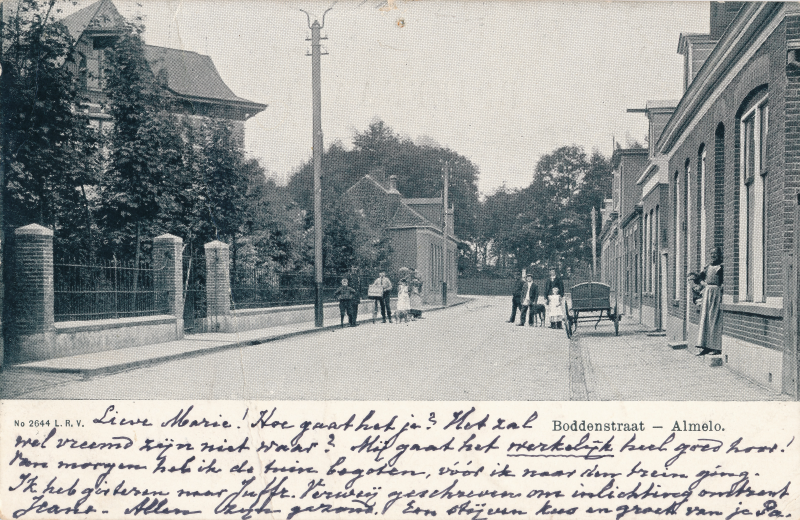 No 2644 L. R. V.
Boddenstraat – Almelo.
Lieve Marie! Hoe gaat het je? Het zal
wel vreemd zijn niet waar? Mij gaat het werkelijk heel goed hoor!
Van morgen heb ik de tuin begoten, vóór ik naar den trein ging.
Ik heb gisteren naar Juffr. Verweij geschreven om inlichting omtrent
Jeans. Allen zijn gezond. Een stijven kus en groet van je Pa.